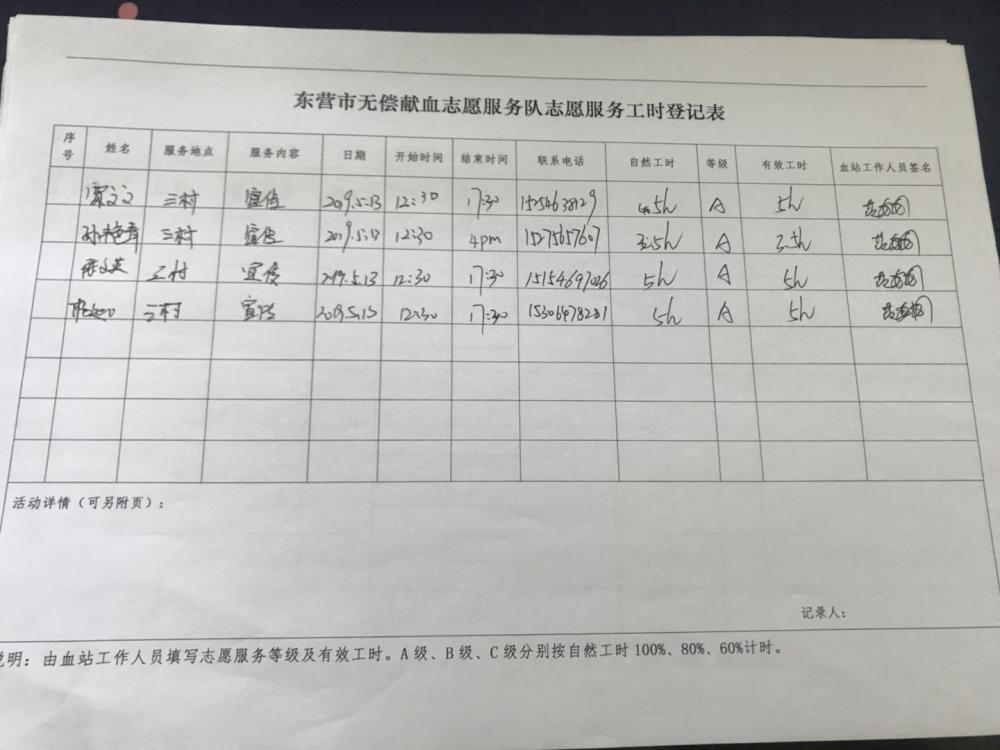 东营市无偿献血志愿服务队志愿服务工时登记表
序号 姓名 服务地点 服务内容 日期 开始时间 结束时间 联系电话 自然工时 等级 有效工时 血站工作人员签名
三村 宣传 2019.5.13 12:30 17:30 5h A 5h
三村 宣传 2019.5.13 12:30 4pm 15275657607 3.5h A 3.5h
三村 宣传 2019.5.13 12:30 17:30 15154697026 5h A 5h
三村 宣传 2019.5.13 12:30 17:30 15306478281 5h A 5h
活动详情(可另附页):
记录人:
说明:由血站工作人员填写志愿服务等级及有效工时。A级、B级、C级分别按自然工时100%、80%、60%计时。